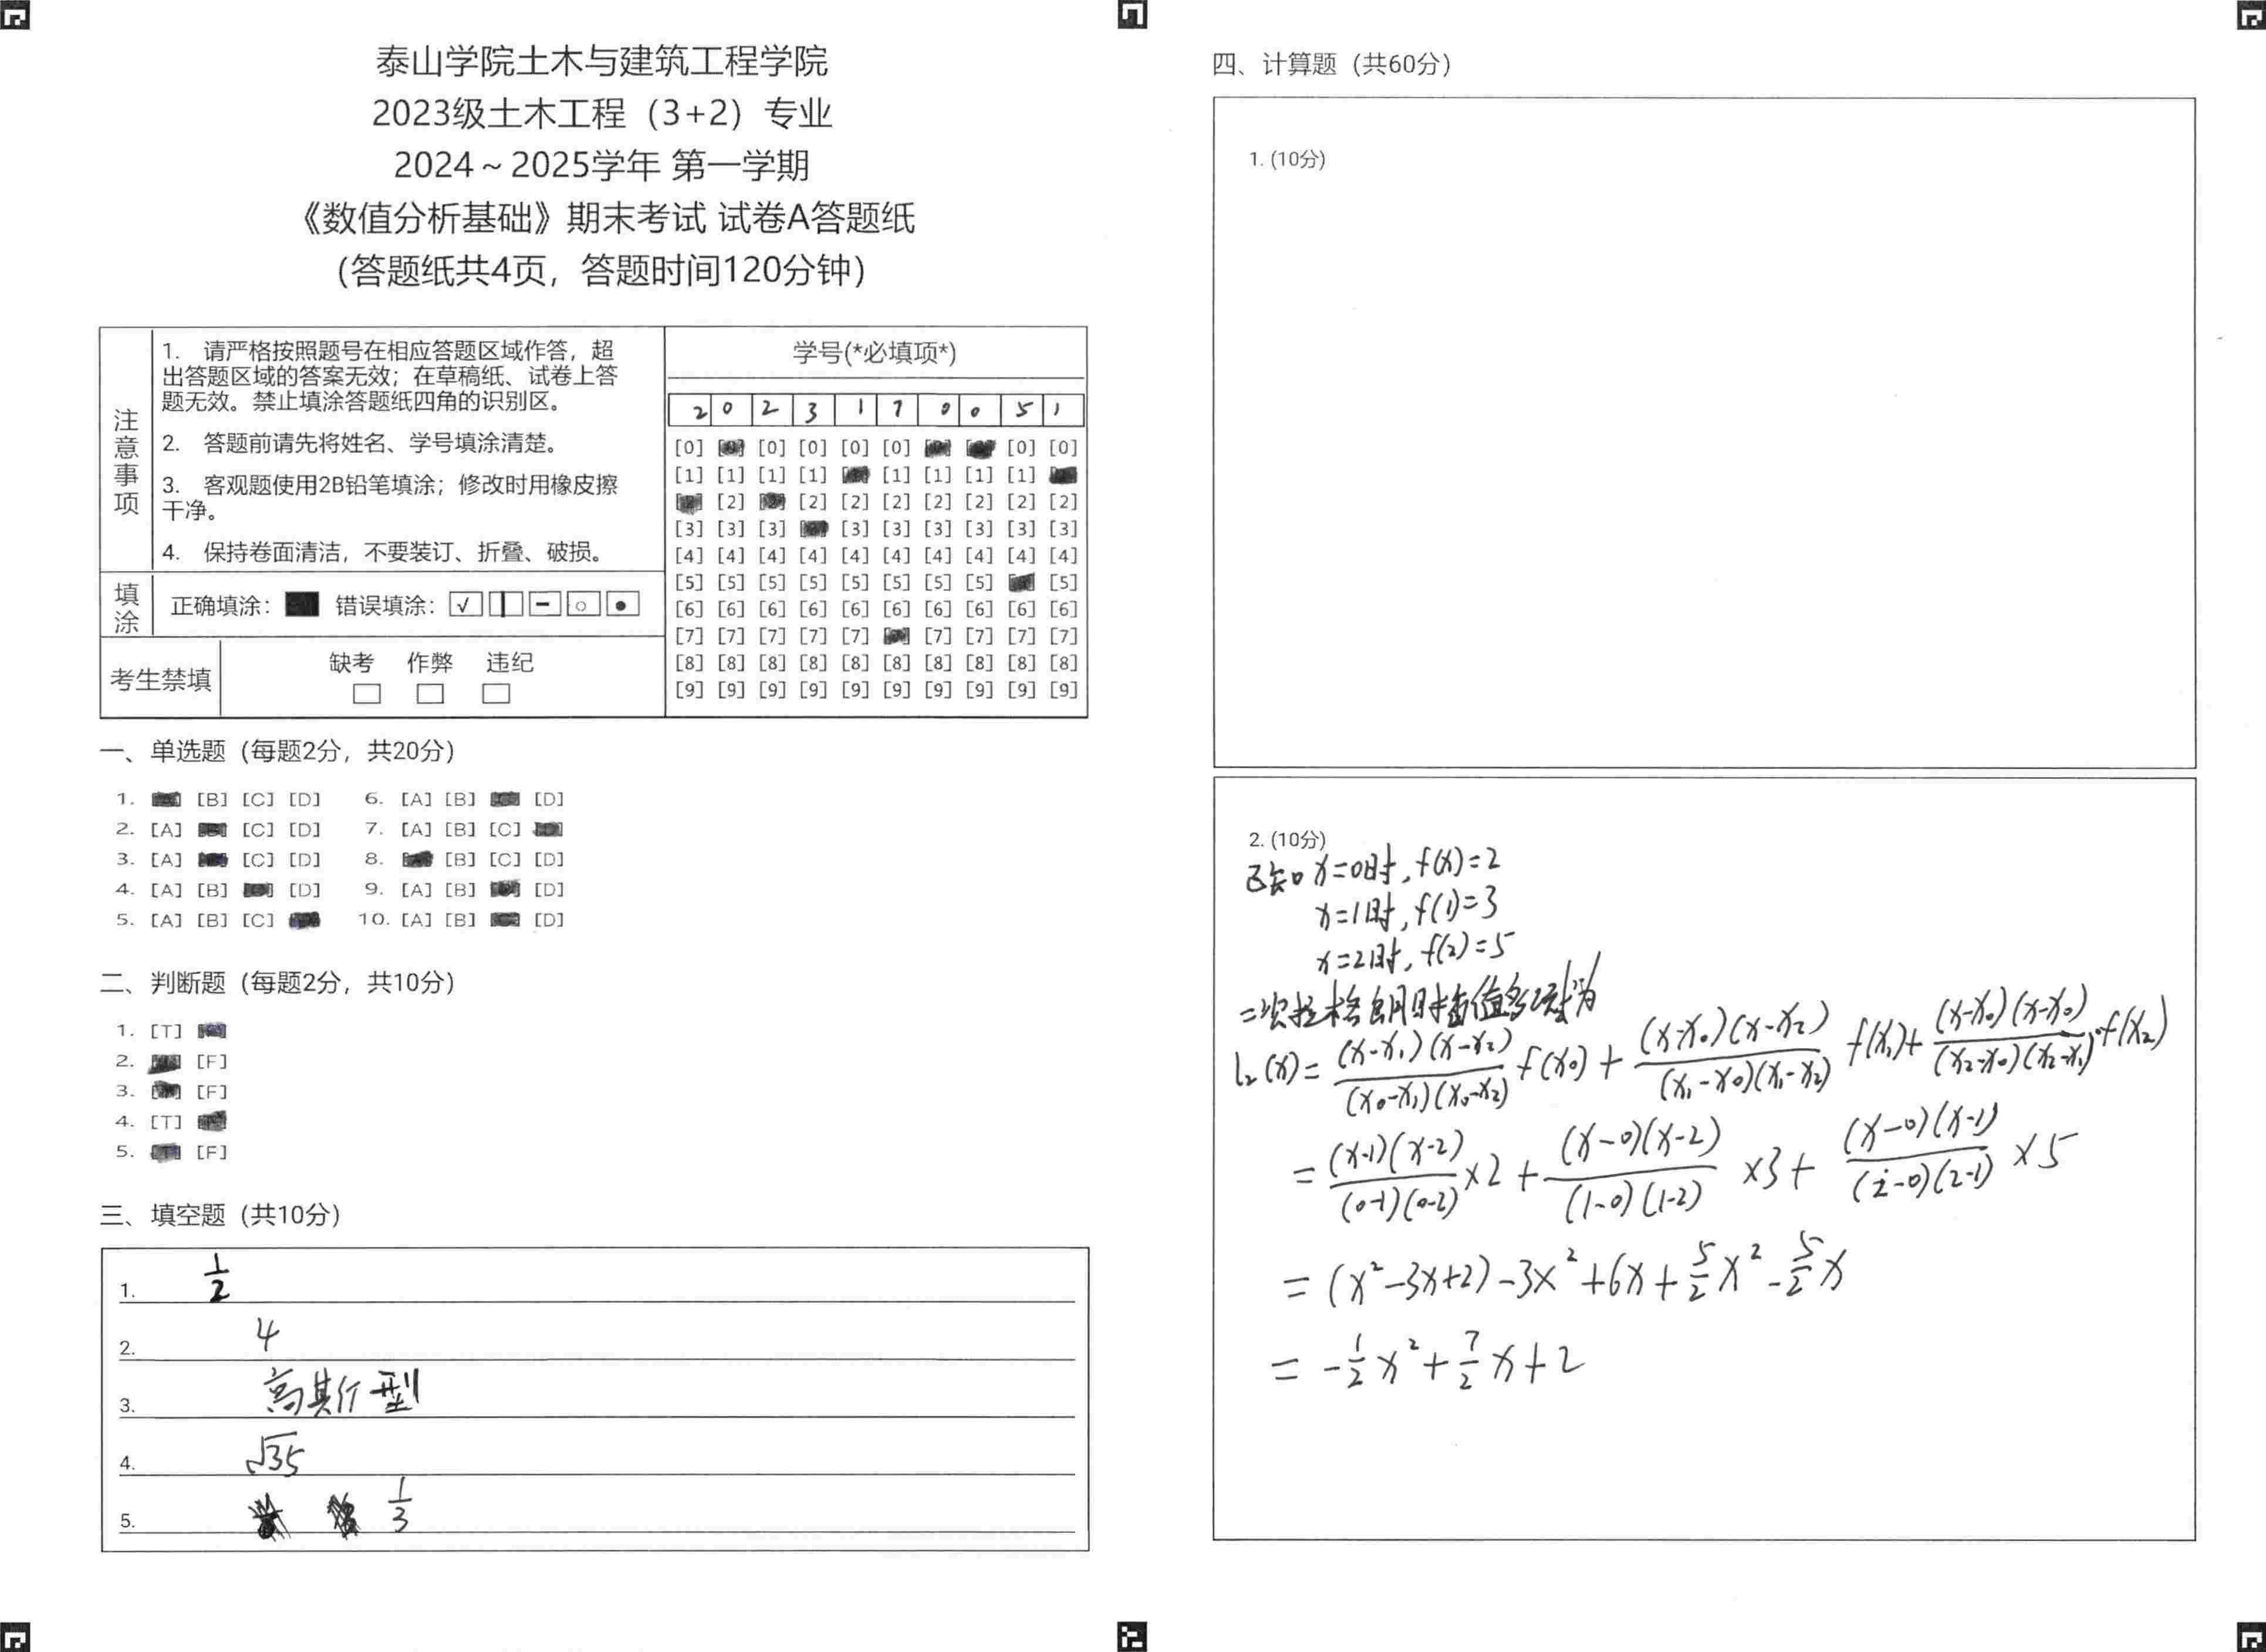 泰山学院土木与建筑工程学院
2023级土木工程（3+2）专业
2024～2025学年 第一学期
《数值分析基础》期末考试 试卷A答题纸
（答题纸共4页，答题时间120分钟）
注意事项
1. 请严格按照题号在相应答题区域作答，超
出答题区域的答案无效；在草稿纸、试卷上答
题无效。禁止填涂答题纸四角的识别区。
2. 答题前请先将姓名、学号填涂清楚。
3. 客观题使用2B铅笔填涂；修改时用橡皮擦
干净。
4. 保持卷面清洁，不要装订、折叠、破损。
填涂 正确填涂： 错误填涂：
考生禁填 缺考 作弊 违纪
学号(*必填项*)
2 0 2 3 1 7 0 0 5 1
[0] [0] [0] [0] [0] [0] [0]
[1] [1] [1] [1] [1] [1] [1] [1]
[2] [2] [2] [2] [2] [2] [2] [2]
[3] [3] [3] [3] [3] [3] [3] [3] [3]
[4] [4] [4] [4] [4] [4] [4] [4] [4] [4]
[5] [5] [5] [5] [5] [5] [5] [5] [5]
[6] [6] [6] [6] [6] [6] [6] [6] [6] [6]
[7] [7] [7] [7] [7] [7] [7] [7] [7]
[8] [8] [8] [8] [8] [8] [8] [8] [8] [8]
[9] [9] [9] [9] [9] [9] [9] [9] [9] [9]
一、单选题（每题2分，共20分）
1. [B] [C] [D] 6. [A] [B] [D]
2. [A] [C] [D] 7. [A] [B] [C]
3. [A] [C] [D] 8. [B] [C] [D]
4. [A] [B] [D] 9. [A] [B] [D]
5. [A] [B] [C] 10. [A] [B] [D]
二、判断题（每题2分，共10分）
1. [T]
2. [F]
3. [F]
4. [T]
5. [F]
三、填空题（共10分）
1. 1/2
2. 4
3. 高其斤型
4. √35
5. 1/3
四、计算题（共60分）
1. (10分)
2. (10分)
已知 x=0时, f(x)=2
x=1时, f(1)=3
x=2时, f(2)=5
二次拉格朗日插值多项式为
l₂(x) = (x-x₁)(x-x₂)/(x₀-x₁)(x₀-x₂) f(x₀) + (x-x₀)(x-x₂)/(x₁-x₀)(x₁-x₂) f(x₁) + (x-x₀)(x-x₀)/(x₂-x₀)(x₂-x₁) · f(x₂)
= (x-1)(x-2)/(0-1)(0-2) ×2 + (x-0)(x-2)/(1-0)(1-2) ×3 + (x-0)(x-1)/(2-0)(2-1) ×5
= (x²-3x+2) -3x² +6x + 5/2 x² - 5/2 x
= -1/2 x² + 7/2 x + 2